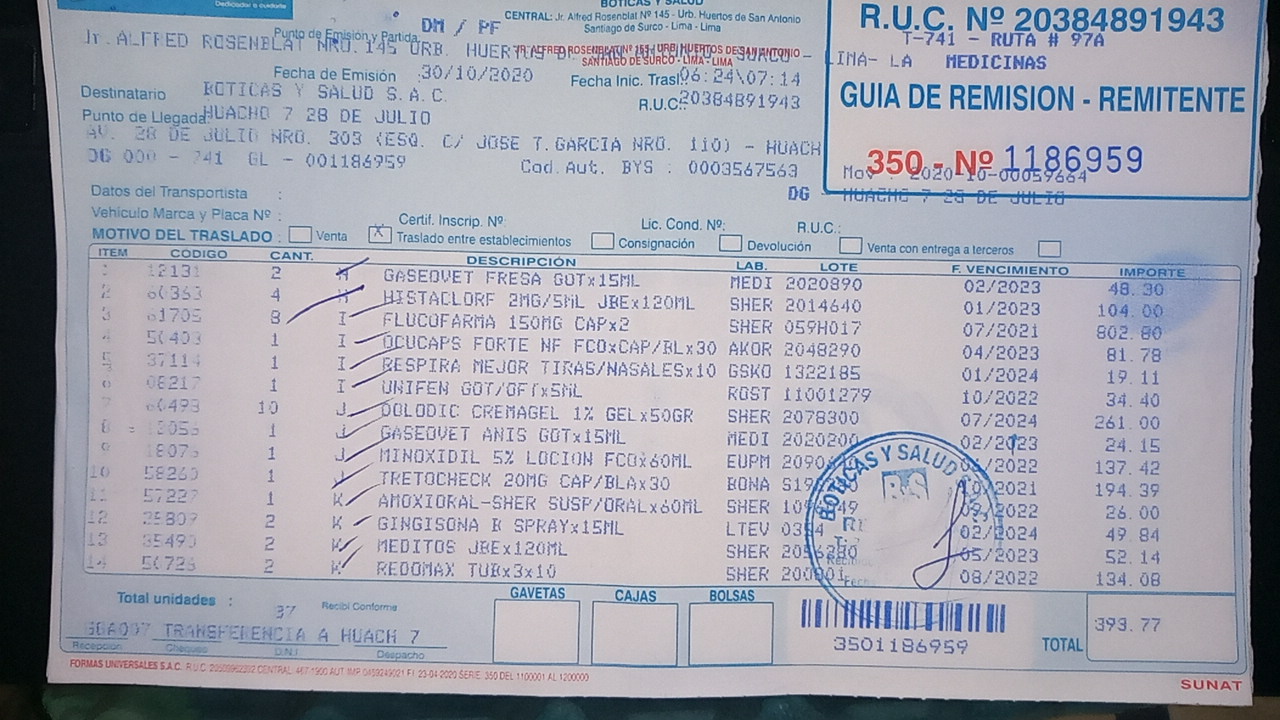 Dedicador a cuidarte
BOTICAS Y SALUD
CENTRAL: Jr. Alfred Rosenblat Nº 145 - Urb. Huertos de San Antonio
Santiago de Surco - Lima - Lima
R.U.C. Nº 20384891943
T-741 - RUTA # 97A
MEDICINAS
GUIA DE REMISION - REMITENTE
350 - Nº 1186959
Mov : 2020-10-00059664
DG - HUACHO 7 28 DE JULIO
Punto de Emisión y Partida DM / PF
Jr. ALFRED ROSENBLAT NRO. 145 URB. HUERTOS DE SAN ANTONIO - SURCO - LIMA- LA
SANTIAGO DE SURCO - LIMA - LIMA
Fecha de Emisión : 30/10/2020 Fecha Inic. Trasl 06:24\07:14
Destinatario BOTICAS Y SALUD S.A.C. R.U.C. 20384891943
Punto de Llegada HUACHO 7 28 DE JULIO
AV. 28 DE JULIO NRO. 303 (ESQ. C/ JOSE T. GARCIA NRO. 110) - HUACH
DG 000 - 741 GL - 001186959 Cod.Aut. BYS : 0003567563
Datos del Transportista :
Vehículo Marca y Placa Nº : Certif. Inscrip. Nº: Lic. Cond. Nº: R.U.C.:
MOTIVO DEL TRASLADO : Venta X Traslado entre establecimientos Consignación Devolución Venta con entrega a terceros
ITEM CÓDIGO CANT. DESCRIPCIÓN LAB. LOTE F. VENCIMIENTO IMPORTE
1 12131 2 GASEOVET FRESA GOTx15ML MEDI 2020890 02/2023 48.30
2 60363 4 HISTACLORF 2MG/5ML JBEx120ML SHER 2014640 01/2023 104.00
3 61705 8 I FLUCOFARMA 150MG CAPx2 SHER 059H017 07/2021 802.80
4 50403 1 I OCUCAPS FORTE NF FCOxCAP/BLx30 AKOR 2048290 04/2023 81.78
5 37114 1 I RESPIRA MEJOR TIRAS/NASALESx10 GSKO 1322185 01/2024 19.11
6 08217 1 I UNIFEN GOT/OFTx5ML ROST 11001279 10/2022 34.40
7 60493 10 J DOLODIC CREMAGEL 1% GELx50GR SHER 2078300 07/2024 261.00
8 1 J GASEOVET ANIS GOTx15ML MEDI 2020200 02/2023 24.15
9 1 J MINOXIDIL 5% LOCION FCOx60ML EUPM 2090 2022 137.42
10 58260 1 J TRETOCHECK 20MG CAP/BLAx30 BONA 2021 194.39
11 57227 1 K AMOXIORAL-SHER SUSP/ORALx60ML SHER 2022 26.00
12 2 K GINGISONA B SPRAYx15ML LTEV 02/2024 49.84
13 35490 2 K MEDITOS JBEx120ML SHER 05/2023 52.14
14 2 K REDOMAX TUBx3x10 SHER 08/2022 134.08
BOTICAS Y SALUD
BS
Total unidades : 37 Recibí Conforme GAVETAS CAJAS BOLSAS
TRANSFERENCIA A HUACH 7
Recepción Chequeo D.N.I. Despacho
3501186959
TOTAL 393.77
FORMAS UNIVERSALES S.A.C.
23-04-2020 SERIE 350 DEL 1100001 AL 1200000
SUNAT